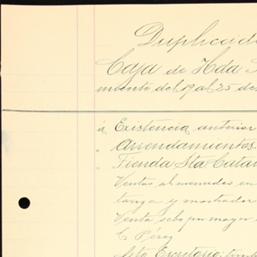 Duplicado
Caja de Hda
miento del 19 al 25 de
á Existencia anterior
" Arrendamientos
" Tienda Sta Catar
Ventas al menudeo en
tanza y mostrador
Venta selo por mayor
C Pérez